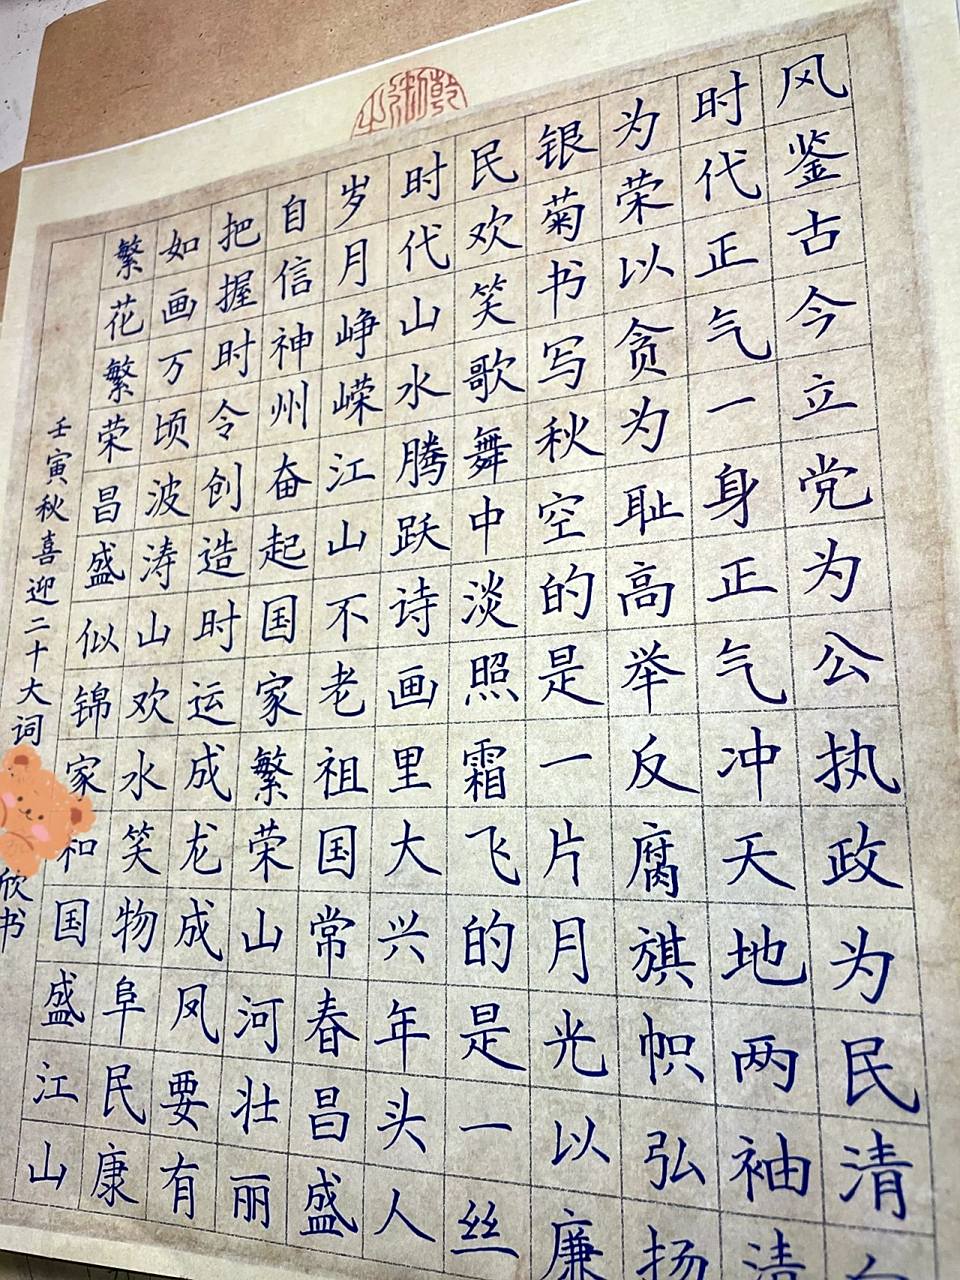 风鉴古今立党为公执政为民清
时代正气一身正气冲天地两袖清
为荣以贪为耻高举反腐旗帜弘扬
银菊书写秋空的是一片月光以廉
民欢笑歌舞中淡照霜飞的是一丝
时代山水腾跃诗画里大兴年头人
岁月峥嵘江山不老祖国常春昌盛
自信神州奋起国家繁荣山河壮丽
把握时令创造时运成龙成凤要有
如画万顷波涛山欢水笑物阜民康
繁花繁荣昌盛似锦家和国盛江山
壬寅秋喜迎二十大词欣书